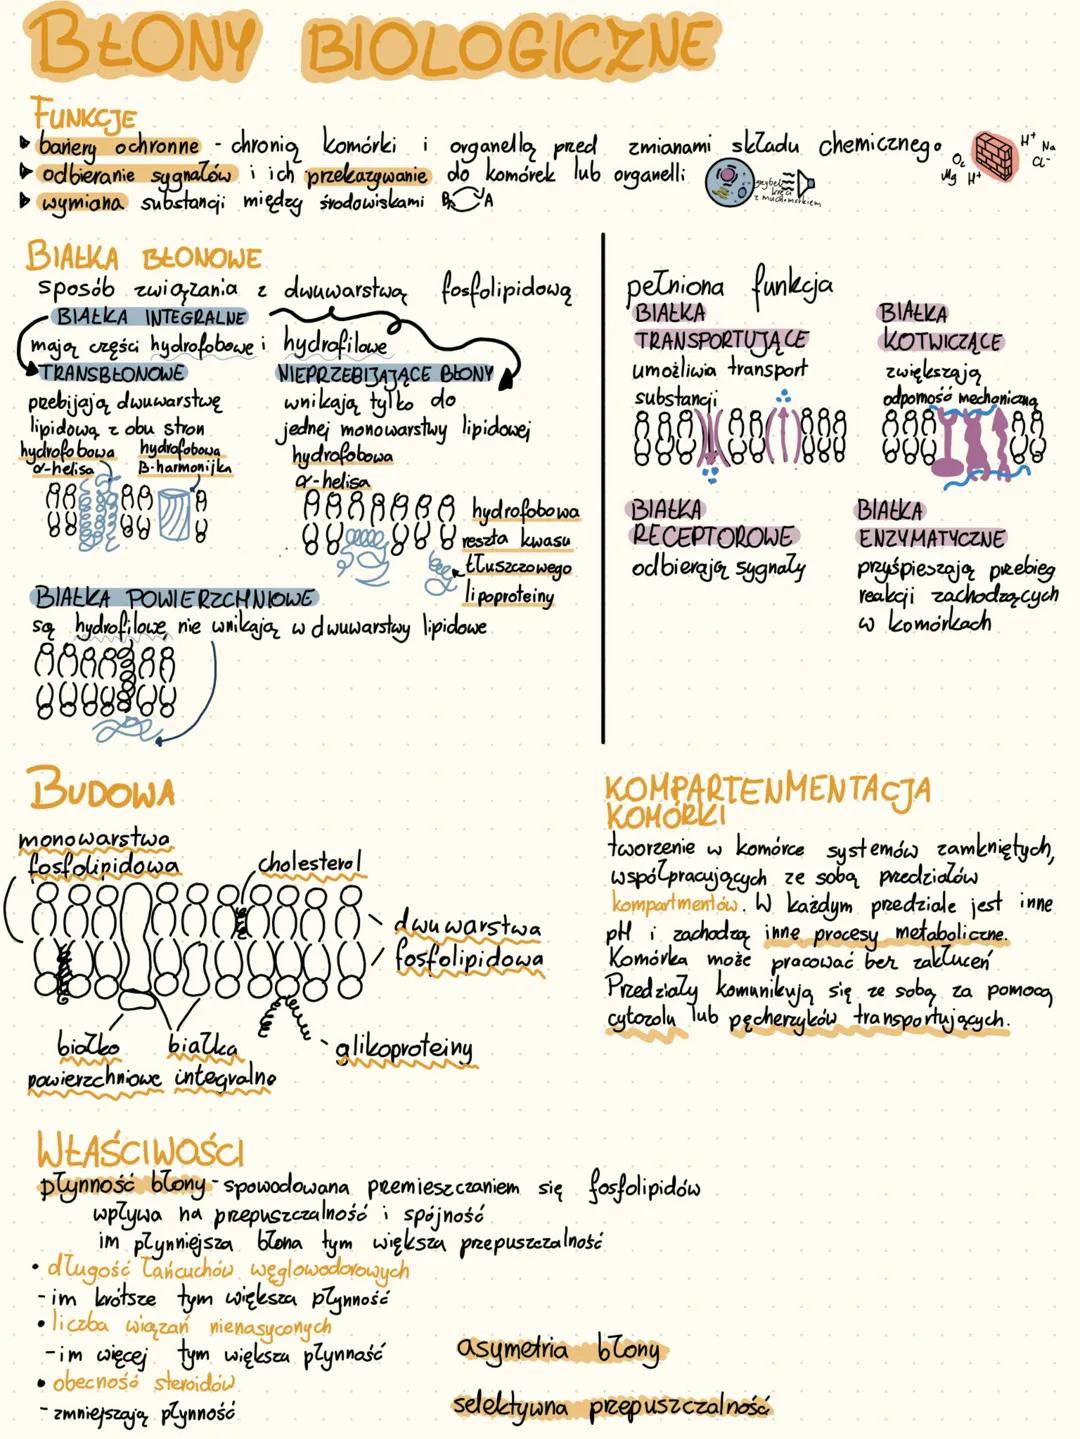 BŁONY BIOLOGICZNE
FUNKCJE
bariery ochronne - chronią komórki i organellą przed zmianami składu chemicznego
odbieranie sygnałów i ich przekazywanie do komórek lub organelli
wymiana substancji między środowiskami B A
O₂ H⁺ Na Cl⁻
Mg H⁺
BIAŁKA BŁONOWE
sposób związania z dwuwarstwą fosfolipidową
BIAŁKA INTEGRALNE
mają części hydrofobowe i hydrofilowe
TRANSBŁONOWE
przebijają dwuwarstwę
lipidową z obu stron
hydrofobowa
α-helisa
hydrofobowa
β-harmonijka
NIEPRZEBIJAJĄCE BŁONY
wnikają tylko do
jednej monowarstwy lipidowej
hydrofobowa
α-helisa
hydrofobowa
reszta kwasu
tłuszczowego
lipoproteiny
BIAŁKA POWIERZCHNIOWE
są hydrofilowe, nie wnikają w dwuwarstwy lipidowe
pełniona funkcja
BIAŁKA
TRANSPORTUJĄCE
umożliwia transport
substancji
BIAŁKA
KOTWICZĄCE
zwiększają
odporność mechaniczną
BIAŁKA
RECEPTOROWE
odbierają sygnały
BIAŁKA
ENZYMATYCZNE
przyśpieszają przebieg
reakcji zachodzących
w komórkach
BUDOWA
monowarstwa
fosfolipidowa
cholesterol
dwuwarstwa
fosfolipidowa
białko
powierzchniowe
białka
integralne
glikoproteiny
KOMPARTENMENTACJA
KOMÓRKI
tworzenie w komórce systemów zamkniętych,
współpracujących ze sobą przedziałów
kompartmentów. W każdym przedziale jest inne
pH i zachodzą inne procesy metaboliczne.
Komórka może pracować bez zakłuceń
Przedziały komunikują się ze sobą za pomocą
cytozolu lub pęcherzyków transportujących.
WŁAŚCIWOŚCI
płynność błony - spowodowana przemieszczaniem się fosfolipidów
wpływa na przepuszczalność i spójność
im płynniejsza błona tym większa przepuszczalność
• długość łańcuchów węglowodorowych
- im krótsze tym większa płynność
• liczba wiązań nienasyconych
- im więcej tym większa płynność
• obecność steroidów
- zmniejszają płynność
asymetria błony
selektywna przepuszczalność